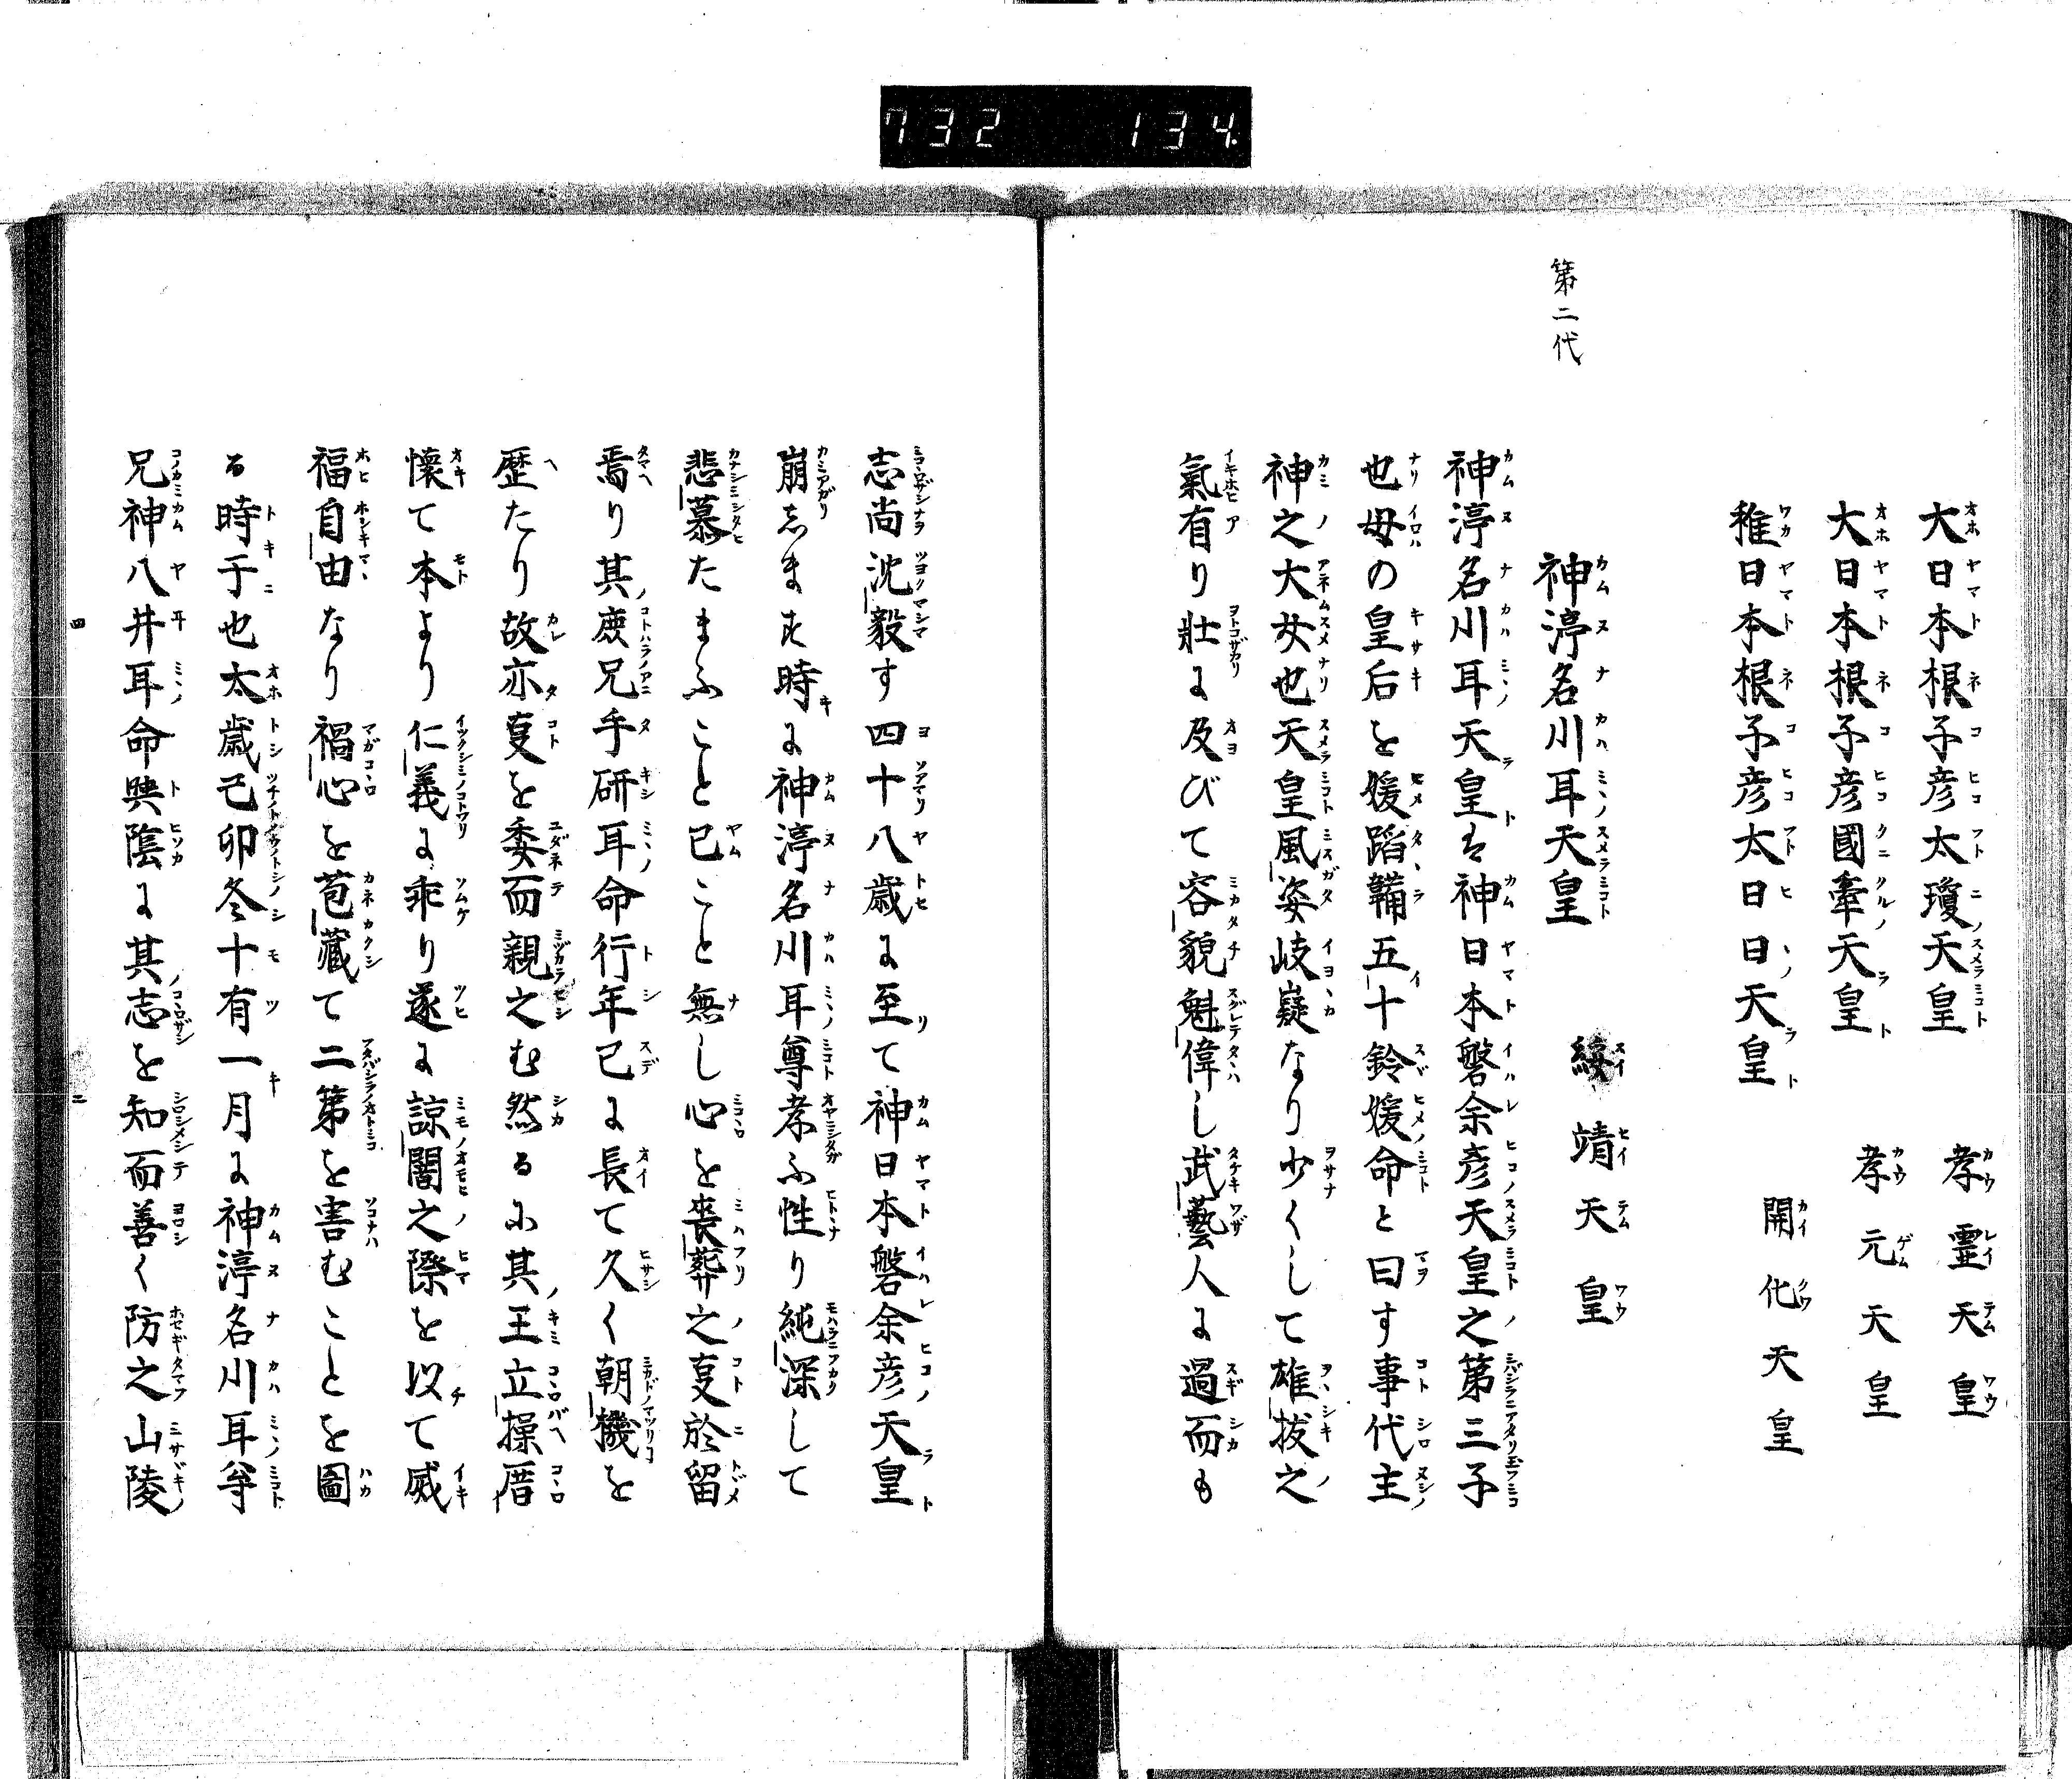 732 134
大日本根子彦太瓊天皇 孝霊天皇
大日本根子彦國牽天皇 孝元天皇
稚日本根子彦太日日天皇 開化天皇
第二代
神渟名川耳天皇 綏靖天皇
神渟名川耳天皇は神日本磐余彦天皇之第三子
也母の皇后を媛蹈鞴五十鈴媛命と曰す事代主
神之大女也天皇風姿岐嶷なり少くして雄抜之
氣有り壯に及びて容貌魁偉し武藝人に過而も
志尚沈毅す四十八歳に至て神日本磐余彦天皇
崩します時に神渟名川耳尊孝ふ性り純深して
悲慕たまふこと已こと無し心を喪葬之㕝於留
焉り其庶兄手研耳命行年已に長て久く朝機を
歴たり故亦㕝を委而親之む然るに其王立操厝
懐て本より仁義に乖り遂に諒闇之際を以て威
福自由なり禍心を苞藏て二弟を害むことを圖
る時于也太歳己卯冬十有一月に神渟名川耳尊
兄神八井耳命與陰に其志を知而善く防之山陵
四 二